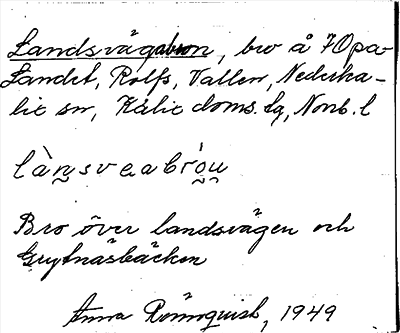 Landsvägabron, bro å 7 Opa-
Landet, Rolfs, Vallen, Nederka-
lix sn, Kalix doms. lg, Norrb. l
lànsveabróu
Bro över landsvägen och
Grytnäsbäcken
Anna Rönnquist, 1949